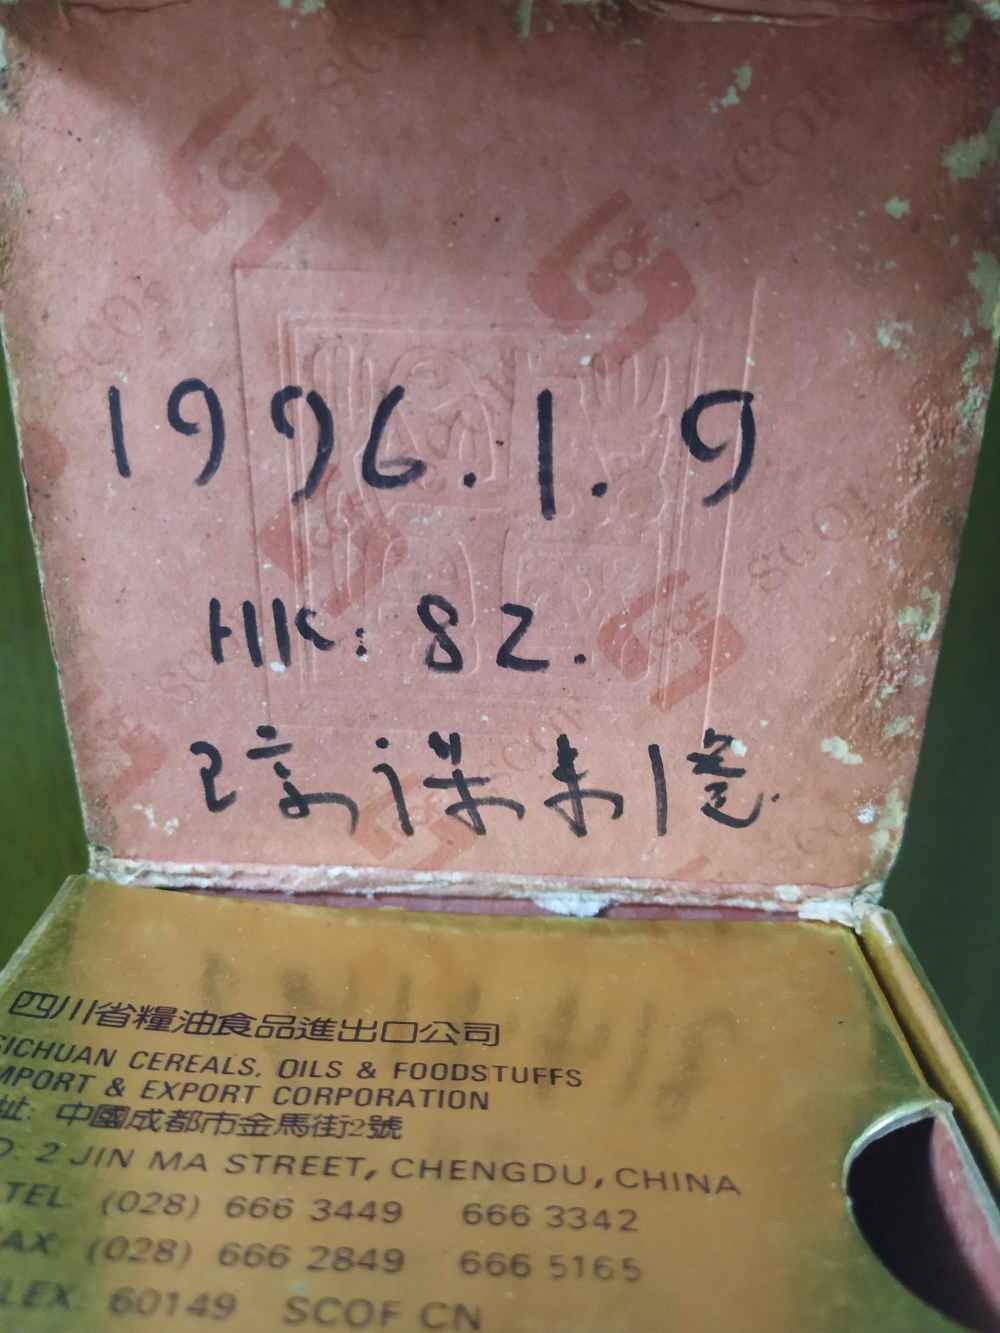 1996.1.9
HK: 82.
四川省糧油食品進出口公司
SICHUAN CEREALS, OILS & FOODSTUFFS
IMPORT & EXPORT CORPORATION
址: 中國成都市金馬街2號
2 JIN MA STREET, CHENGDU, CHINA
TEL: (028) 666 3449 666 3342
FAX: (028) 666 2849 666 5165
LEX: 60149 SCOF CN